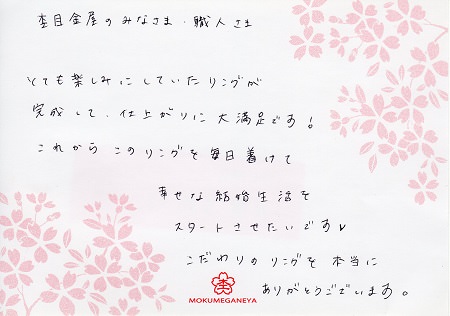 杢目金屋のみなさま・職人さま
とても楽しみにしていたリングが
完成して、仕上がりに大満足です！
これからこのリングを毎日着けて
幸せな結婚生活を
スタートさせたいです♥
こだわりのリングを本当に
ありがとうございます。
杢
MOKUMEGANEYA